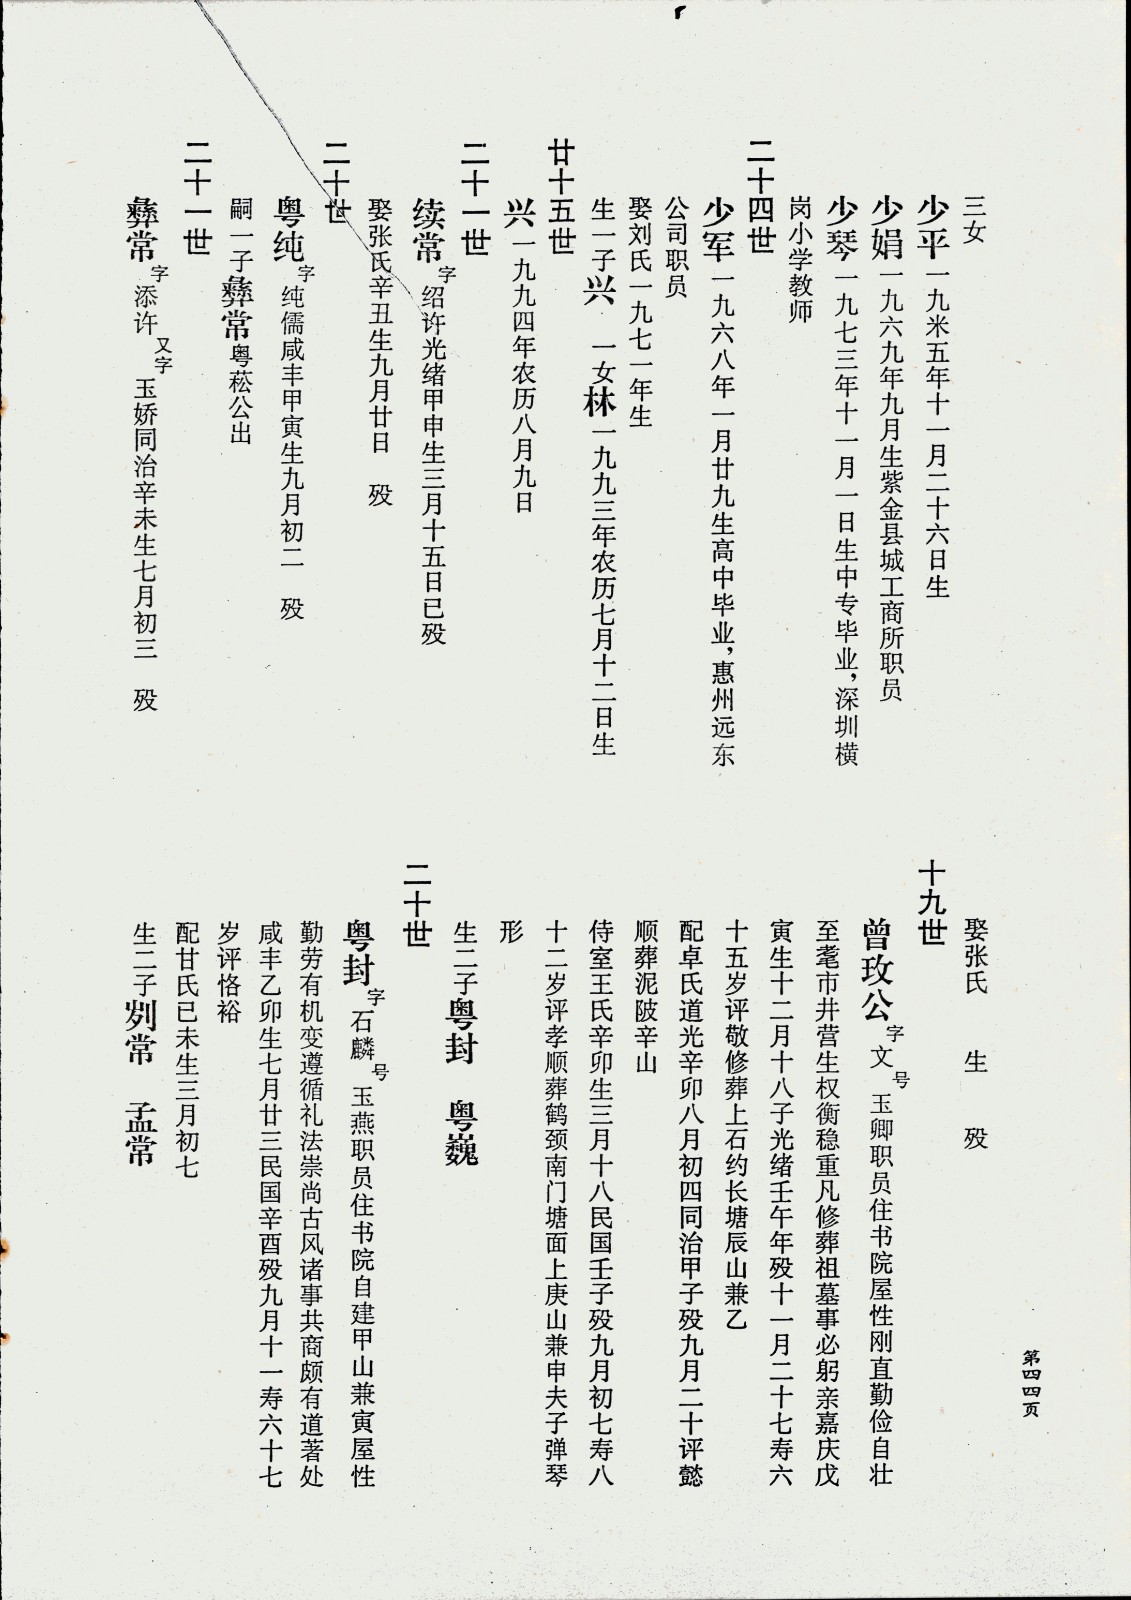 三女
少平一九米五年十一月二十六日生
少娟一九六九年九月生紫金县城工商所职员
少琴一九七三年十一月一日生中专毕业,深圳横
岗小学教师
二十四世
少军一九六八年一月廿九生高中毕业,惠州远东
公司职员
娶刘氏一九七一年生
生一子兴 一女林一九九三年农历七月十二日生
廿十五世
兴一九九四年农历八月九日
二十一世
续常字绍许光绪甲申生三月十五日已殁
娶张氏辛丑生九月廿日 殁
二十世
粤纯字纯儒咸丰甲寅生九月初二 殁
嗣一子彝常粤菘公出
二十一世
彝常字添许又字玉娇同治辛未生七月初三 殁
娶张氏 生 殁
十九世
曾玫公字文号玉卿职员住书院屋性刚直勤俭自壮
至耄市井营生权衡稳重凡修葬祖墓事必躬亲嘉庆戊
寅生十二月十八子光绪壬午年殁十一月二十七寿六
十五岁评敬修葬上石约长塘辰山兼乙
配卓氏道光辛卯八月初四同治甲子殁九月二十评懿
顺葬泥陂辛山
侍室王氏辛卯生三月十八民国壬子殁九月初七寿八
十二岁评孝顺葬鹤颈南门塘面上庚山兼申夫子弹琴
形
生二子粤封 粤巍
二十世
粤封字石麟号玉燕职员住书院自建甲山兼寅屋性
勤劳有机变遵循礼法崇尚古风诸事共商颇有道著处
咸丰乙卯生七月廿三民国辛酉殁九月十一寿六十七
岁评恪裕
配甘氏已未生三月初七
生二子常 孟常
第四四页